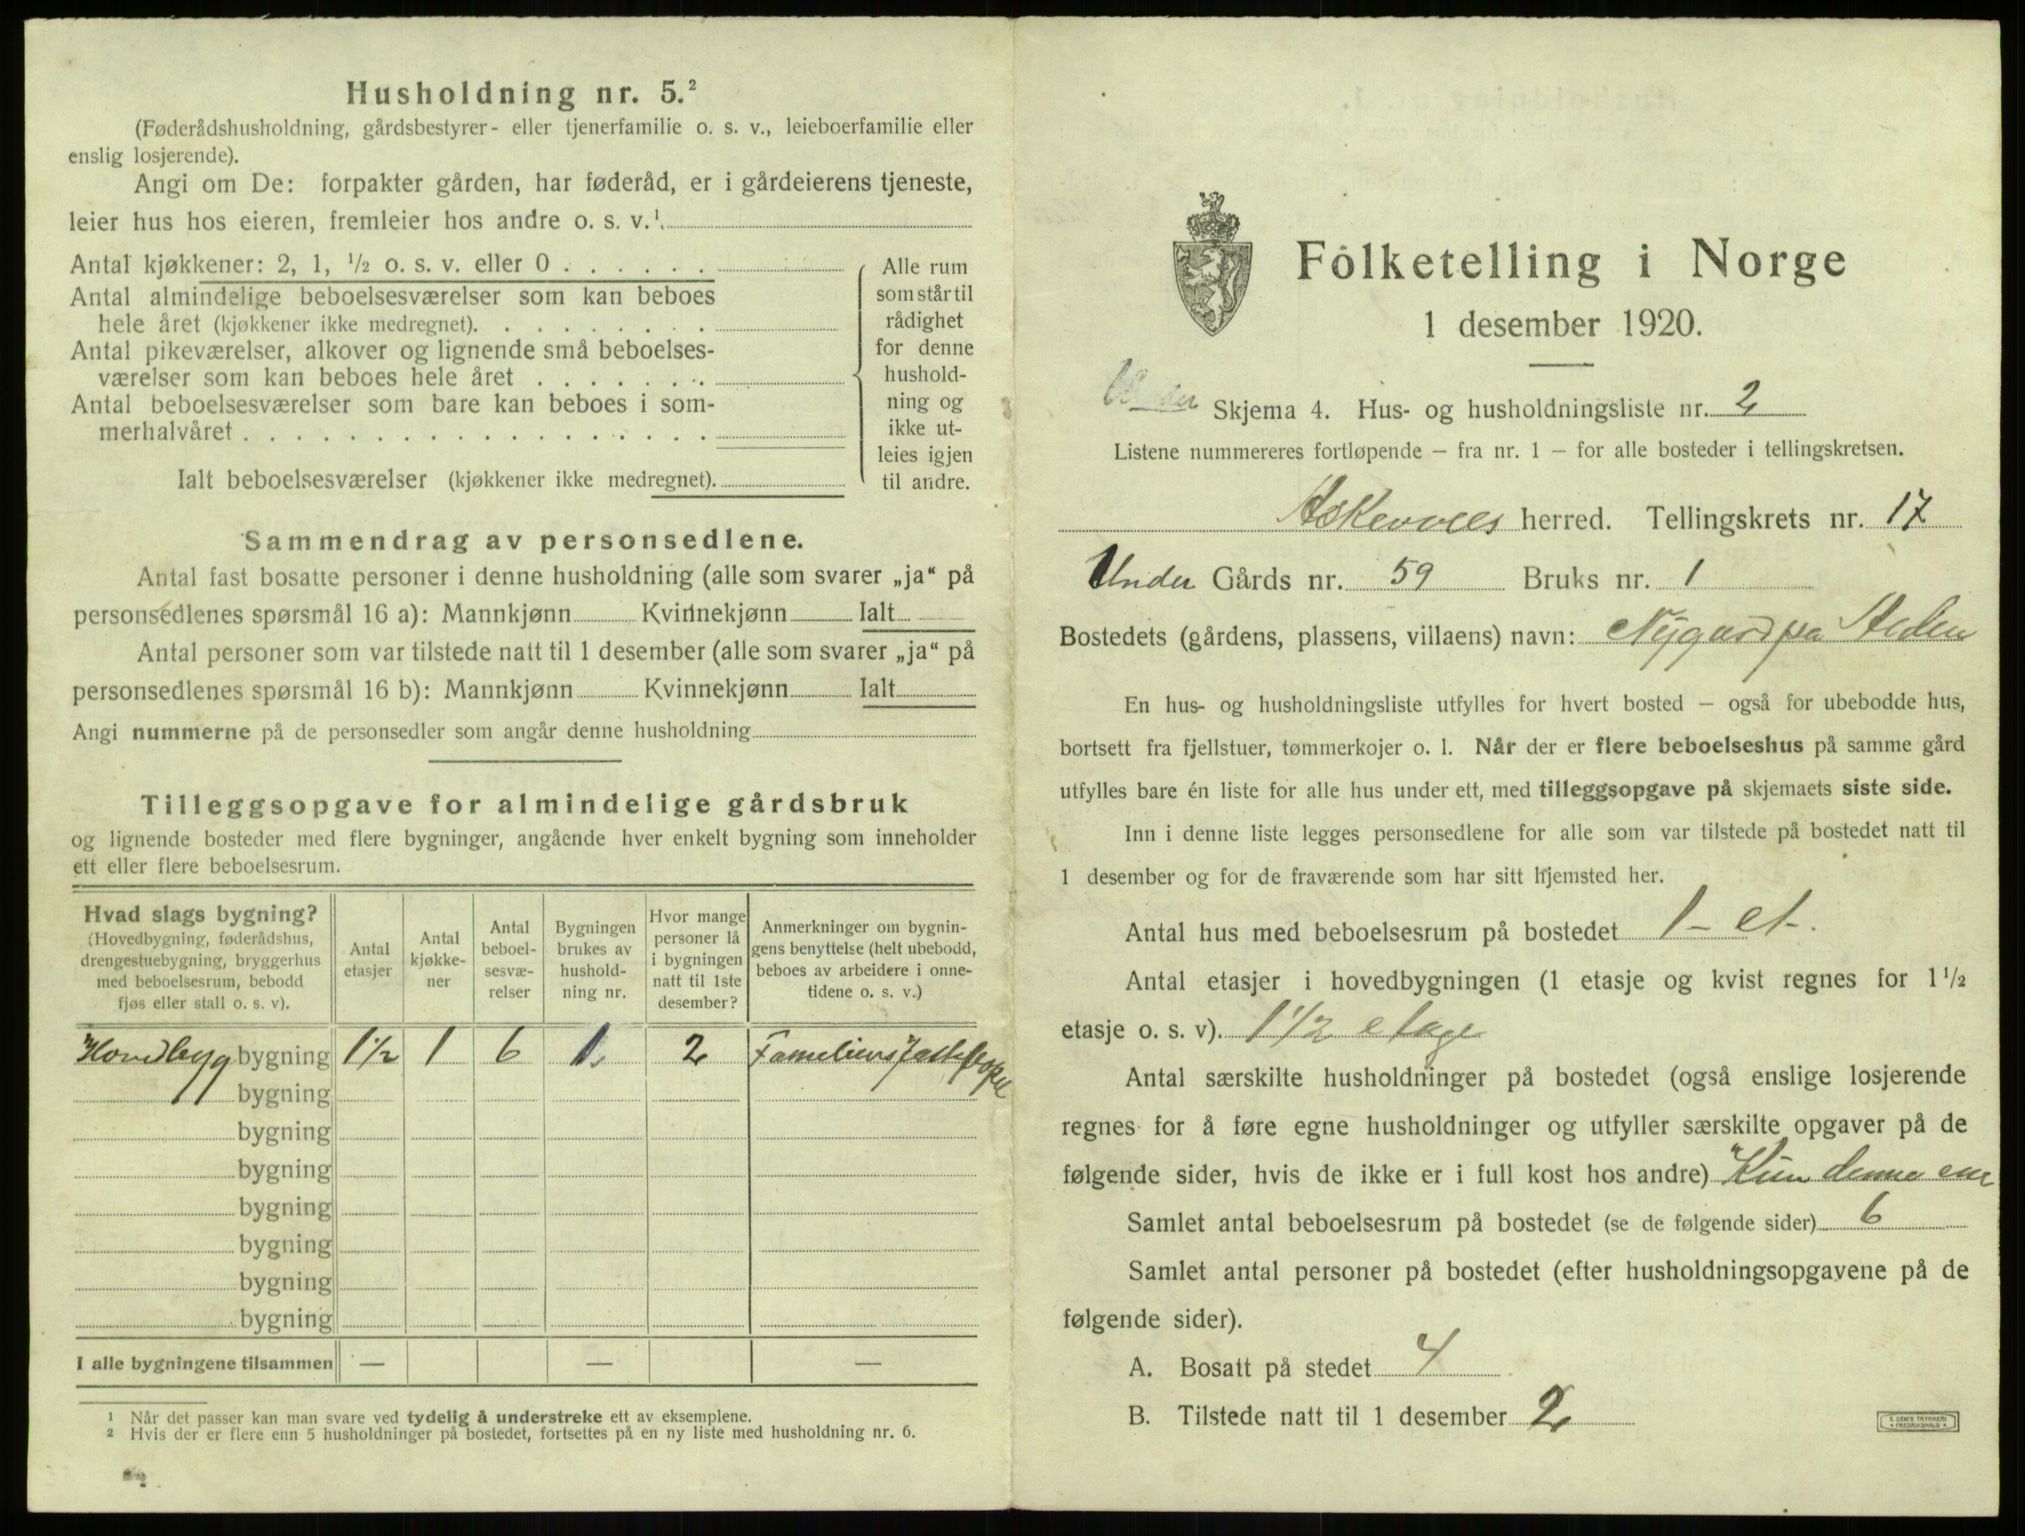 Husholdning nr. 5.²
(Føderådshusholdning, gårdsbestyrer- eller tjenerfamilie o. s. v., leieboerfamilie eller
enslig losjerende).
Angi om De: forpakter gården, har føderåd, er i gårdeierens tjeneste,
leier hus hos eieren, fremleier hos andre o. s. v.¹.
Antal kjøkkener: 2, 1, ½ o. s. v. eller 0 . . . . . .
Antal almindelige beboelsesværelser som kan beboes
hele året (kjøkkener ikke medregnet). . . . . . . . .
Antal pikeværelser, alkover og lignende små beboelses-
værelser som kan beboes hele året . . . . . . .
Antal beboelsesværelser som bare kan beboes i som-
merhalvåret . . . . . . . . . . . . . . . . . .
Ialt beboelsesværelser (kjøkkener ikke medregnet).
Alle rum
som står til
rådighet
for denne
hushold-
ning og
ikke ut-
leies igjen
til andre.
Sammendrag av personsedlene.
Antal fast bosatte personer i denne husholdning (alle som svarer „ja“ på
personsedlenes spørsmål 16 a): Mannkjønn Kvinnekjønn Ialt
Antal personer som var tilstede natt til 1 desember (alle som svarer „ja“ på
personsedlenes spørsmål 16 b): Mannkjønn Kvinnekjønn Ialt
Angi nummerne på de personsedler som angår denne husholdning
Tilleggsopgave for almindelige gårdsbruk
og lignende bosteder med flere bygninger, angående hver enkelt bygning som inneholder
ett eller flere beboelsesrum.
Hvad slags bygning?
(Hovedbygning, føderådshus,
drengestuebygning, bryggerhus
med beboelsesrum, bebodd
fjøs eller stall o. s. v).
Antal
etasjer
Antal
kjøkke-
ner
Antal
beboel-
sesvæ-
relser
Bygningen
brukes av
hushold-
ning nr.
Hvor mange
personer lå
i bygningen
natt til 1ste
desember?
Anmerkninger om bygnin-
gens benyttelse (helt ubebodd,
beboes av arbeidere i onne-
tidene o. s. v.)
Hovedbyg bygning 1½ 1 6 1. 2
bygning
bygning
bygning
bygning
bygning
bygning
bygning
I alle bygningene tilsammen — — —
¹ Når det passer kan man svare ved tydelig å understreke ett av eksemplene.
² Hvis der er flere enn 5 husholdninger på bostedet, fortsettes på en ny liste med husholdning nr. 6.
Folketelling i Norge
1 desember 1920.
Skjema 4. Hus- og husholdningsliste nr. 2
Listene nummereres fortløpende – fra nr. 1 – for alle bosteder i tellingskretsen.
Askevolls herred. Tellingskrets nr. 17
Under Gårds nr. 59 Bruks nr. 1
Bostedets (gårdens, plassens, villaens) navn: Nygard pa
En hus- og husholdningsliste utfylles for hvert bosted – også for ubebodde hus,
bortsett fra fjellstuer, tømmerkojer o. l. Når der er flere beboelseshus på samme gård
utfylles bare én liste for alle hus under ett, med tilleggsopgave på skjemaets siste side.
Inn i denne liste legges personsedlene for alle som var tilstede på bostedet natt til
1 desember og for de fraværende som har sitt hjemsted her.
Antal hus med beboelsesrum på bostedet 1 - et.
Antal etasjer i hovedbygningen (1 etasje og kvist regnes for 1½
etasje o. s. v). 1½ etage
Antal særskilte husholdninger på bostedet (også enslige losjerende
regnes for å føre egne husholdninger og utfyller særskilte opgaver på de
følgende sider, hvis de ikke er i full kost hos andre) Kun denne ene
Samlet antal beboelsesrum på bostedet (se de følgende sider) 6
Samlet antal personer på bostedet (efter husholdningsopgavene på de
følgende sider).
A. Bosatt på stedet 4
B. Tilstede natt til 1 desember 2